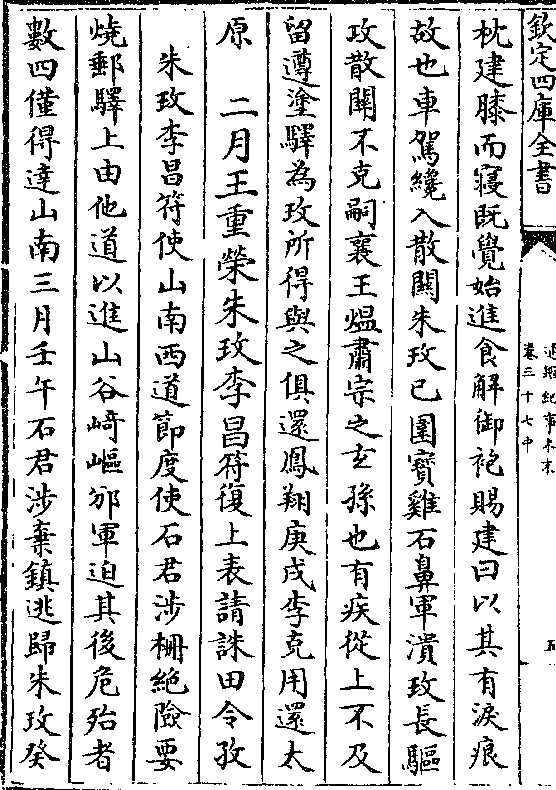 欽定四庫全書
通鑑紀事本末
卷三十七中
五
枕建膝而寝既覺始進食解御袍賜建曰以其有淚痕
故也車駕纔入散關朱玫已圍寶雞石鼻軍潰玫長驅
攻散關不克嗣襄王熅肅宗之玄孫也有疾從上不及
留遵塗驛為玫所得與之俱還鳳翔庚戌李克用還太
原　二月王重榮朱玫李昌符復上表請誅田令孜
朱玫李昌符使山南西道節度使石君涉柵絶險要
燒郵驛上由他道以進山谷﨑嶇邠軍迫其後危殆者
數四僅得達山南三月壬午石君涉棄鎮逃歸朱玫癸